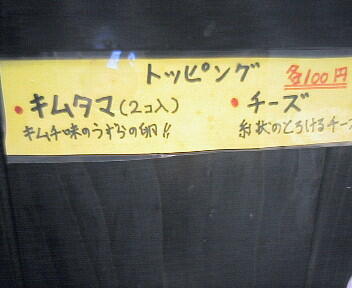 トッピング 各100円
•キムタマ(2コ入)
キムチ味のうずらの卵!!
•チーズ
糸状のとろけるチーズ